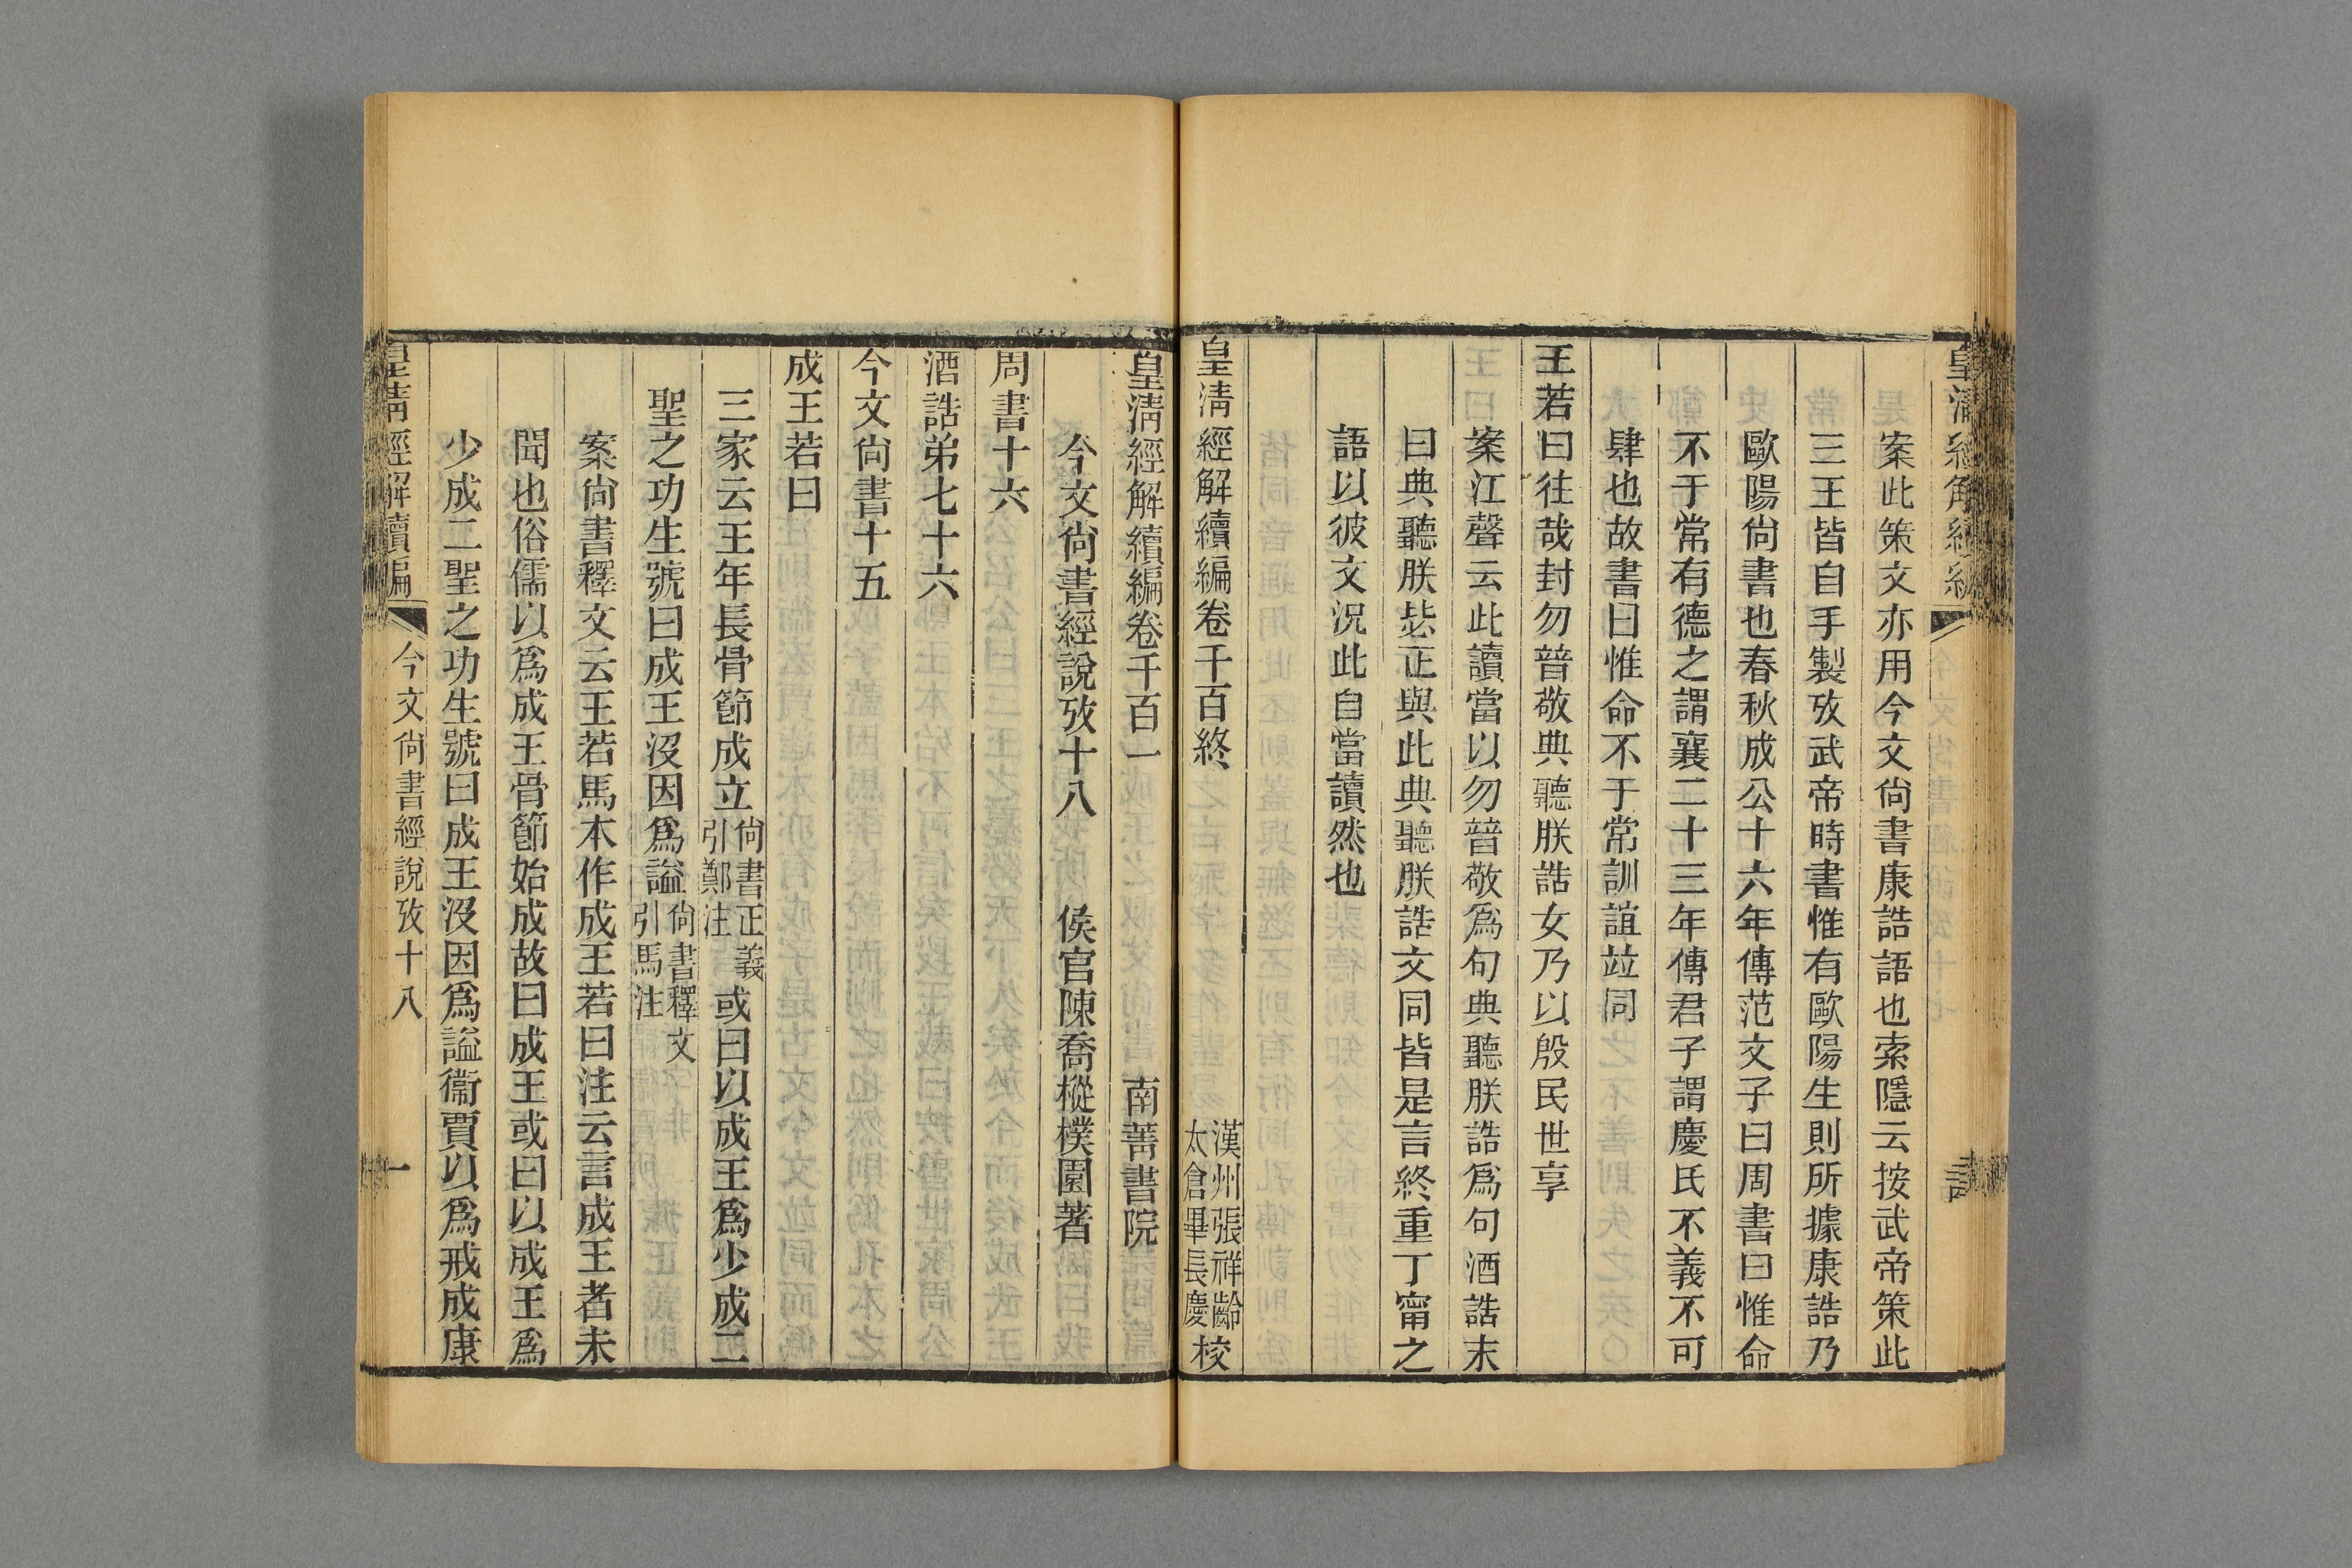 案此策文亦用今文尙書康誥語也索隱云按武帝策此
三王皆自手製攷武帝時書惟有歐陽生則所據康誥乃
歐陽尙書也春秋成公十六年傳范文子曰周書曰惟命
不于常有德之謂襄二十三年傳君子謂慶氏不義不可
肆也故書曰惟命不于常訓誼竝同
王若曰往哉封勿朁敬典聽朕誥女乃以殷民世享
案江聲云此讀當以勿朁敬爲句典聽朕誥爲句酒誥末
曰典聽朕毖正與此典聽朕誥文同皆是言終重丁甯之
語以彼文況此自當讀然也
皇淸經解續編卷千百終
漢州張祥齡
太倉畢長慶校
皇淸經解續編卷千百一
南菁書院
今文尙書經說攷十八
侯官陳喬樅樸園著
周書十六
酒誥弟七十六
今文尙書十五
成王若曰
三家云王年長骨節成立尙書正義引鄭注或曰以成王爲少成二
聖之功生號曰成王沒因爲謚尙書釋文引馬注
案尙書釋文云王若馬本作成王若曰注云言成王者未
聞也俗儒以爲成王骨節始成故曰成王或曰以成王爲
少成二聖之功生號曰成王沒因爲謚衞賈以爲戒成康
皇淸經解續編
今文尙書經說攷十八
一